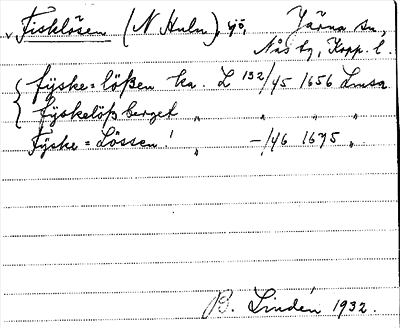 v Fisklösen (N Huln), sjö, Järna sn,
Nås bg, Kopp. l.
fijske=lößen ka. L 132/45 1656 Lmsa
fijskelöß berget " " " "
Fijske=Lössen! " -/46 1675 "
B. Lindén 1932.